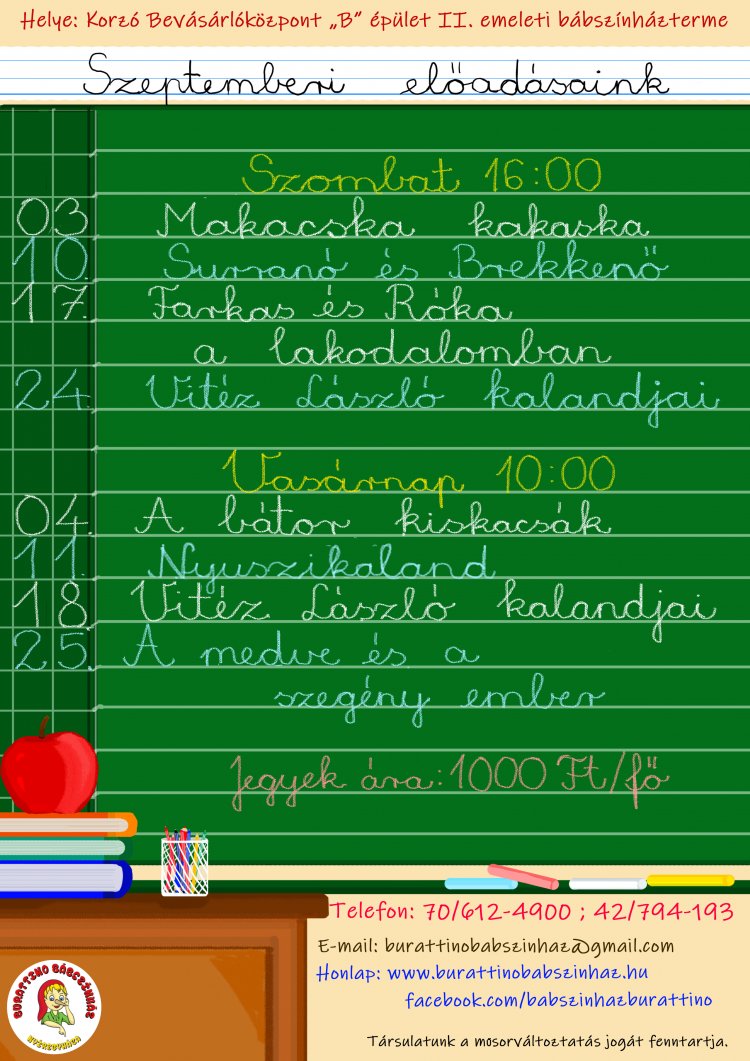 Helye: Korzó Bevásárlóközpont „B” épület II. emeleti bábszínházterme
Szeptemberi előadásaink
Szombat 16:00
03. Makacska kakaska
10. Surranó és Brekkenő
17. Farkas és Róka
a lakodalomban
24. Vitéz László kalandjai
Vasárnap 10:00
04. A bátor kiskacsák
11. Nyuszikaland
18. Vitéz László kalandjai
25. A medve és a
szegény ember
Jegyek ára: 1000 Ft/fő
Telefon: 70/612-4900 ; 42/794-193
E-mail: burattinobabszinhaz@gmail.com
Honlap: www.burattinobabszinhaz.hu
facebook.com/babszinhazburattino
BURATTINO BÁBSZÍNHÁZ
NYÍREGYHÁZA
Társulatunk a mosorváltoztatás jogát fenntartja.